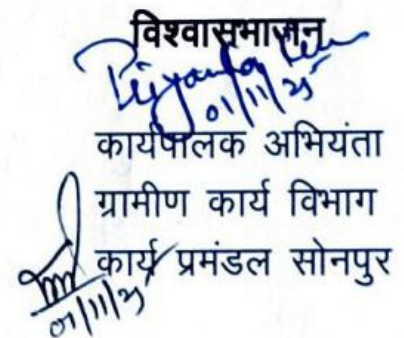 विश्वासभाजन
01/11/25
कार्यपालक अभियंता
ग्रामीण कार्य विभाग
कार्य प्रमंडल सोनपुर
01/11/25